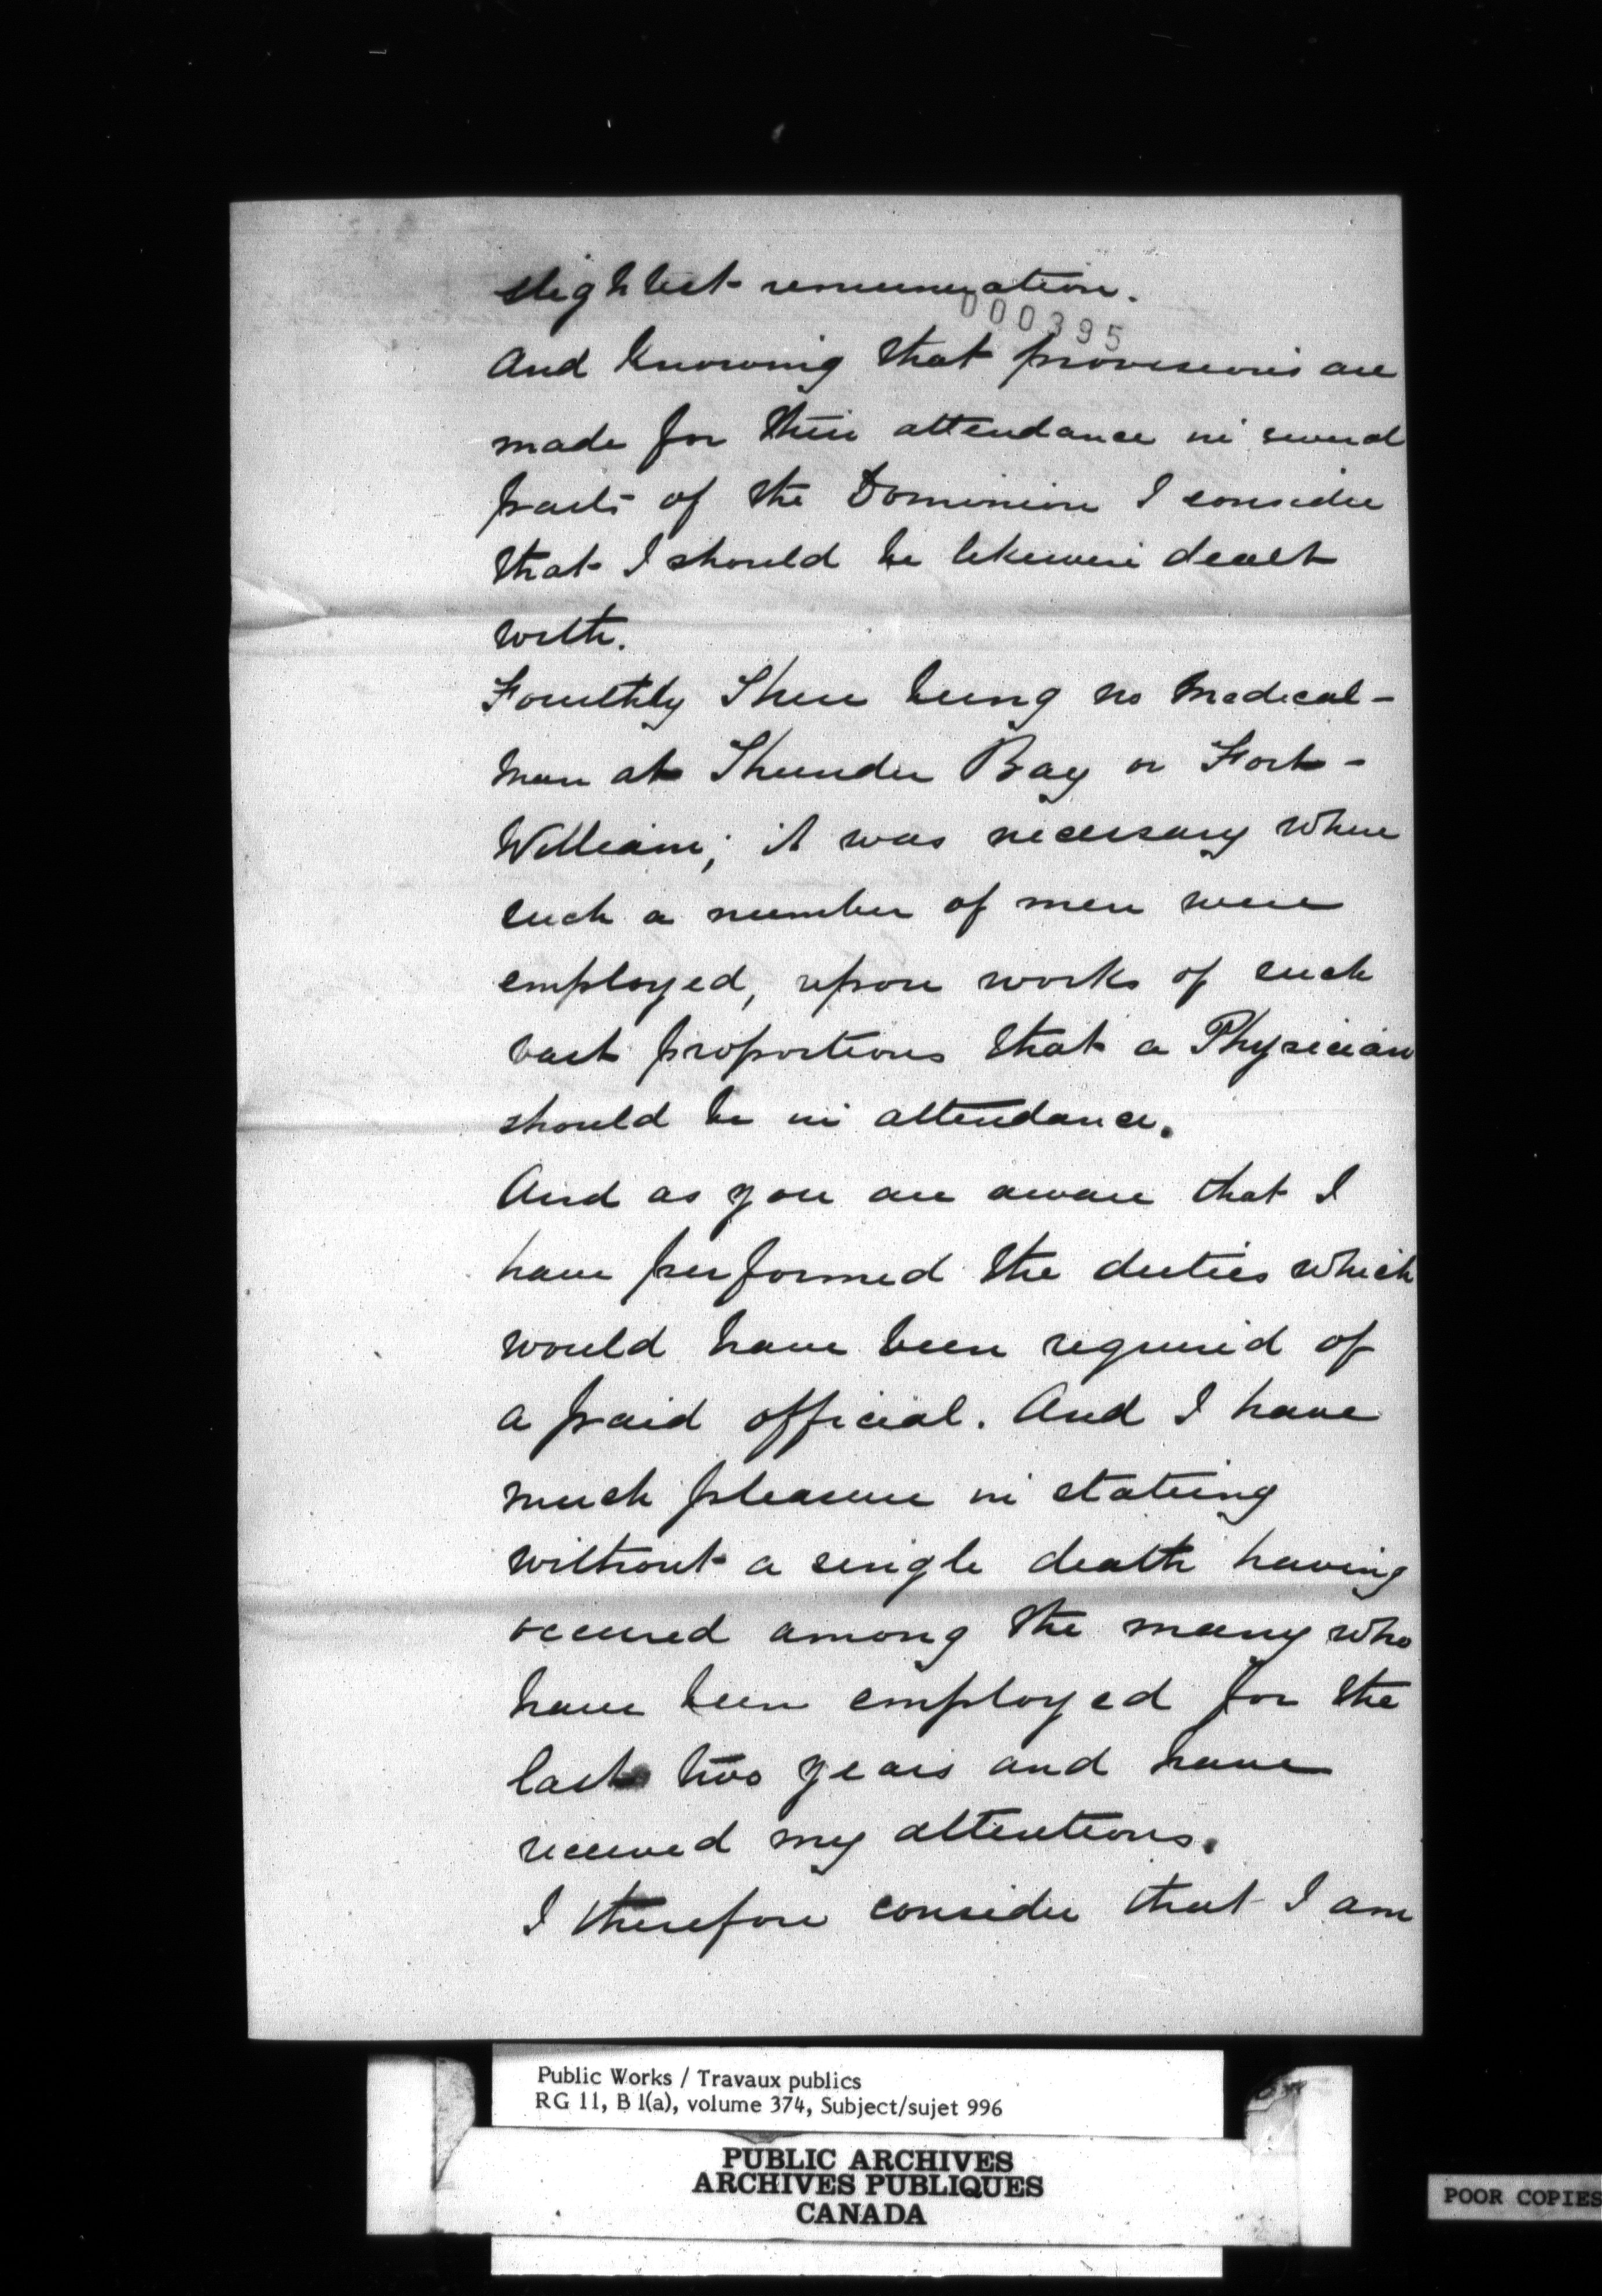 slightest remuneration.
000395
And Knowing that provisions are
made for their attendance in several
parts of the Dominion I consider
that I should be likewise dealt
with.
Fourthly There being no Medical-
Man at Thunder Bay or Fort-
William; it was necessary where
such a number of men were
employed, upon works of such
vast proportions that a Physician
should be in attendance.
And as you are aware that I
have performed the duties which
would have been required of
a paid official. And I have
much pleasure in stating
without a single death having
occured among the many who
have been employed for the
last two years and have
received my attentions.
I therefore consider that I am
Public Works / Travaux publics
RG 11, B 1(a), volume 374, Subject/sujet 996
PUBLIC ARCHIVES
ARCHIVES PUBLIQUES
CANADA
POOR COPIES